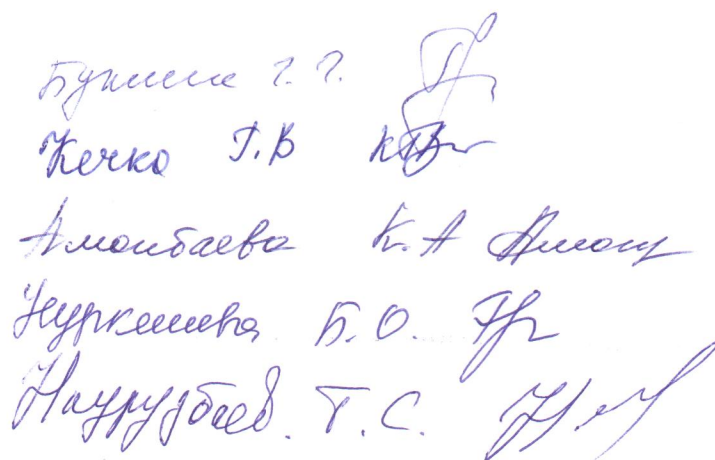 Букина Г. Г.
Кечко Т.В КТВ
Амонбаева К.А Амон
Нуркешева Б.О.
Наурузбаев. Т.С.